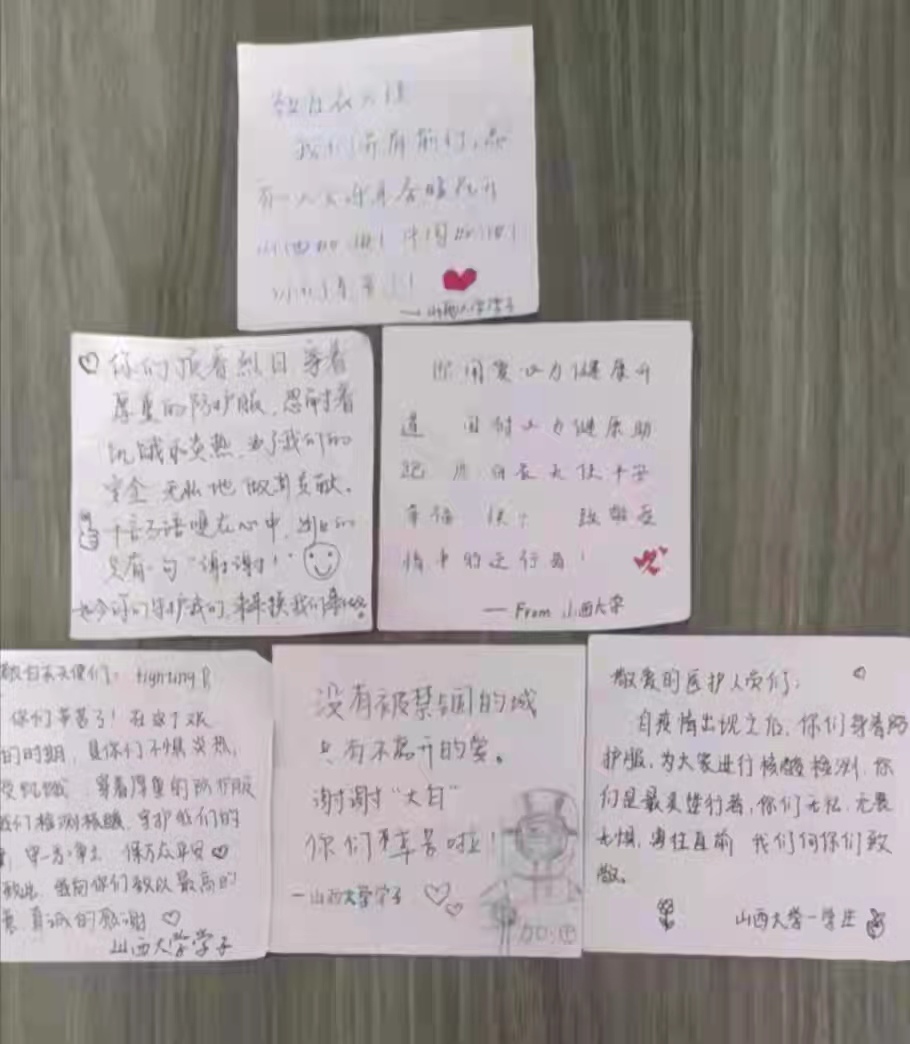 我们携手前行,
山西加油！中国加油！
你们辛苦了！
—山西大学学子
你们顶着烈日 穿着
厚重的防护服，忍耐着
饥饿和炎热，为了我们的
安全 无私地做着贡献。
千言万语哽在心中，
只有一句“谢谢！”
如今你们守护我们，未来换我们
你用爱心为健康开
道 用村心为健康助
起 白衣天使平安
幸福 致敬疫
情中的逆行者！
—From 山西大学
敬白衣天使们： fighting
你们辛苦了！在这个艰
的时期，是你们不惧炎热，
受饥饿 穿着厚重的防护服
我们检测核酸，守护我们的
守一方净土 保万众平安
在此，我向你们致以最高的
真诚的感谢
山西大学学子
没有被禁锢的城
只有不离开的爱。
谢谢“大白”
你们辛苦啦！
—山西大学学子
加油
敬爱的医护人员们：
自疫情出现之后，你们身着防
护服，为大家进行核酸检测，你
们是最美逆行者，你们无私，无畏
无惧，勇往直前 我们向你们致
敬。
山西大学一学生